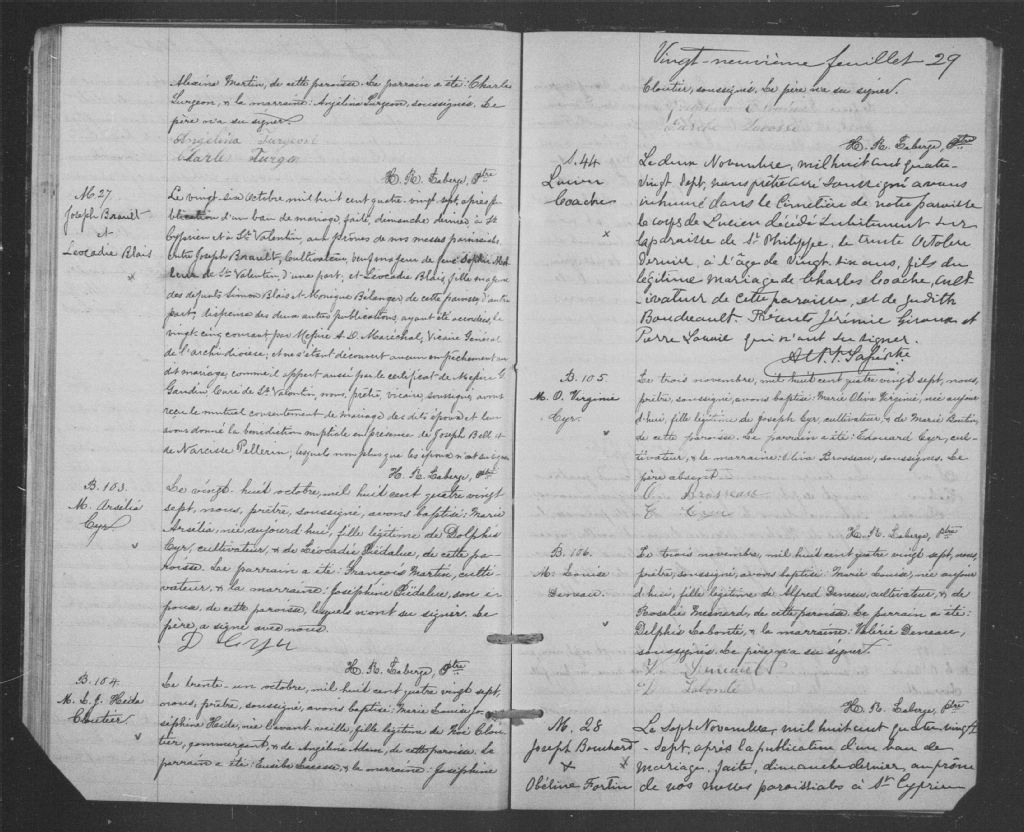 Alexina Martin, de cette paroisse. Le parrain a été: Charles
Surgeon, & la marraine: Angélina Surgeon, soussignés. Le
père n'a su signer.
Angélina Turgeon
Charle Turgo
H. R. Laberge, Ptre
M. 27
Joseph Brault
et
Léocadie Blais
x
Le vingt-six octobre mil huit cent quatre vingt sept, après pu-
blication d'un ban de mariage faite, dimanche dernier à St
Cyprien et à St Valentin, aux prônes de nos messes paroissiales
entre Joseph Brault, Cultivateur, veuf majeur de feue Sophie
de St Valentin, d'une part, et Léocadie Blais, fille majeure
des défunts Simon Blais et Monique Bélanger de cette paroisse, d'autre
part; dispense des deux autres publications, ayant été accordée, le
vingt-cinq courant par Messire A. D. Maréchal, Vicaire Général
de l'archidiocèse, et ne s'étant découvert aucun empêchement au
dit mariage, comme il appert aussi par le certificat de Messire G.
Gaudin Curé de St Valentin, nous, prêtre, vicaire, soussigné, avons
reçu le mutuel consentement de mariage des dits époux et leur
avons donné la bénédiction nuptiale en présence de Joseph Bell &
de Narcisse Pellerin, lesquels non plus que les époux n'ont su signer.
H. R. Laberge, Ptre
B. 103.
M. Arsélia
Cyr
v
Le vingt-huit octobre, mil huit cent quatre vingt
sept, nous, prêtre, soussigné, avons baptisé: Marie
Arsélia, née aujourd'hui, fille légitime de Dolphis
Cyr, cultivateur, & de Léocadie Rédalue, de cette pa-
roisse. Le parrain a été: François Martin, culti-
vateur, & la marraine: Joséphine Rédalue, son é-
pouse, de cette paroisse, lesquels n'ont su signer. Le
père, a signé avec nous.
D Cyr
H. R. Laberge, Ptre
B. 104.
M. L. J. Heida
Cloutier
v
Le trente-un octobre, mil huit cent quatre vingt sept,
nous, prêtre, soussigné, avons baptisé: Marie Louisa Jo-
séphine Heida, née l'avant-veille, fille légitime de Noé Clou-
tier, commerçant, & de Angélina, de cette paroisse. Le
parrain a été: Eusèbe, & la marraine: Joséphine
Vingt-neuvième feuillet 29
Cloutier, soussignés. Le père n'a su signer.
H. R. Laberge, Ptre
S. 44
Lucien
Coache
x
Le deux Novembre, mil huit cent quatre-
vingt-sept, nous prêtre curé soussigné avons
inhumé dans le Cimetière de notre paroisse
le corps de Lucien décédé subitement sur
la paroisse de St Philippe, le trente Octobre
dernier, à l'âge de vingt-six ans, fils du
légitime mariage de Charles Coache, cult-
ivateur de cette paroisse, et de Judith
Boudreault. Présents Jérémie Giroux et
Pierre Louvié qui n'ont su signer.
B. 105
M. O. Virginie
Cyr.
v
Le trois novembre, mil huit cent quatre vingt sept, nous,
prêtre, soussigné, avons baptisé: Marie Oliva Virginie, née aujour-
d'hui, fille légitime de Joseph Cyr, cultivateur, & de Marie Boutin,
de cette paroisse. Le parrain a été: Edouard Cyr, cul-
tivateur, & la marraine: Oliva Brosseau, soussignés. Le
père absent.
O. Brosseau
E Cyr
H. R. Laberge, Ptre
B. 106.
M. Louise
Deneau.
v
Le trois novembre, mil huit cent quatre vingt sept, nous,
prêtre, soussigné, avons baptisé: Marie Louise, née aujour-
d'hui, fille légitime de Alfred Deneau, cultivateur, & de
Rosalie Mesnard, de cette paroisse. Le parrain a été:
Delphis Labonté, & la marraine: Valérie Deneau,
soussignés. Le père n'a su signer.
V Deneault
D Labonté
H. R. Laberge, Ptre
M. 28
Joseph Bouchard
x
Obéline Fortin
Le Sept Novembre, mil huit cent quatre vingt
-Sept, après la publication d'un ban de
mariage, faite, dimanche dernier, au prône
de nos messes paroissiales à St Cyprien